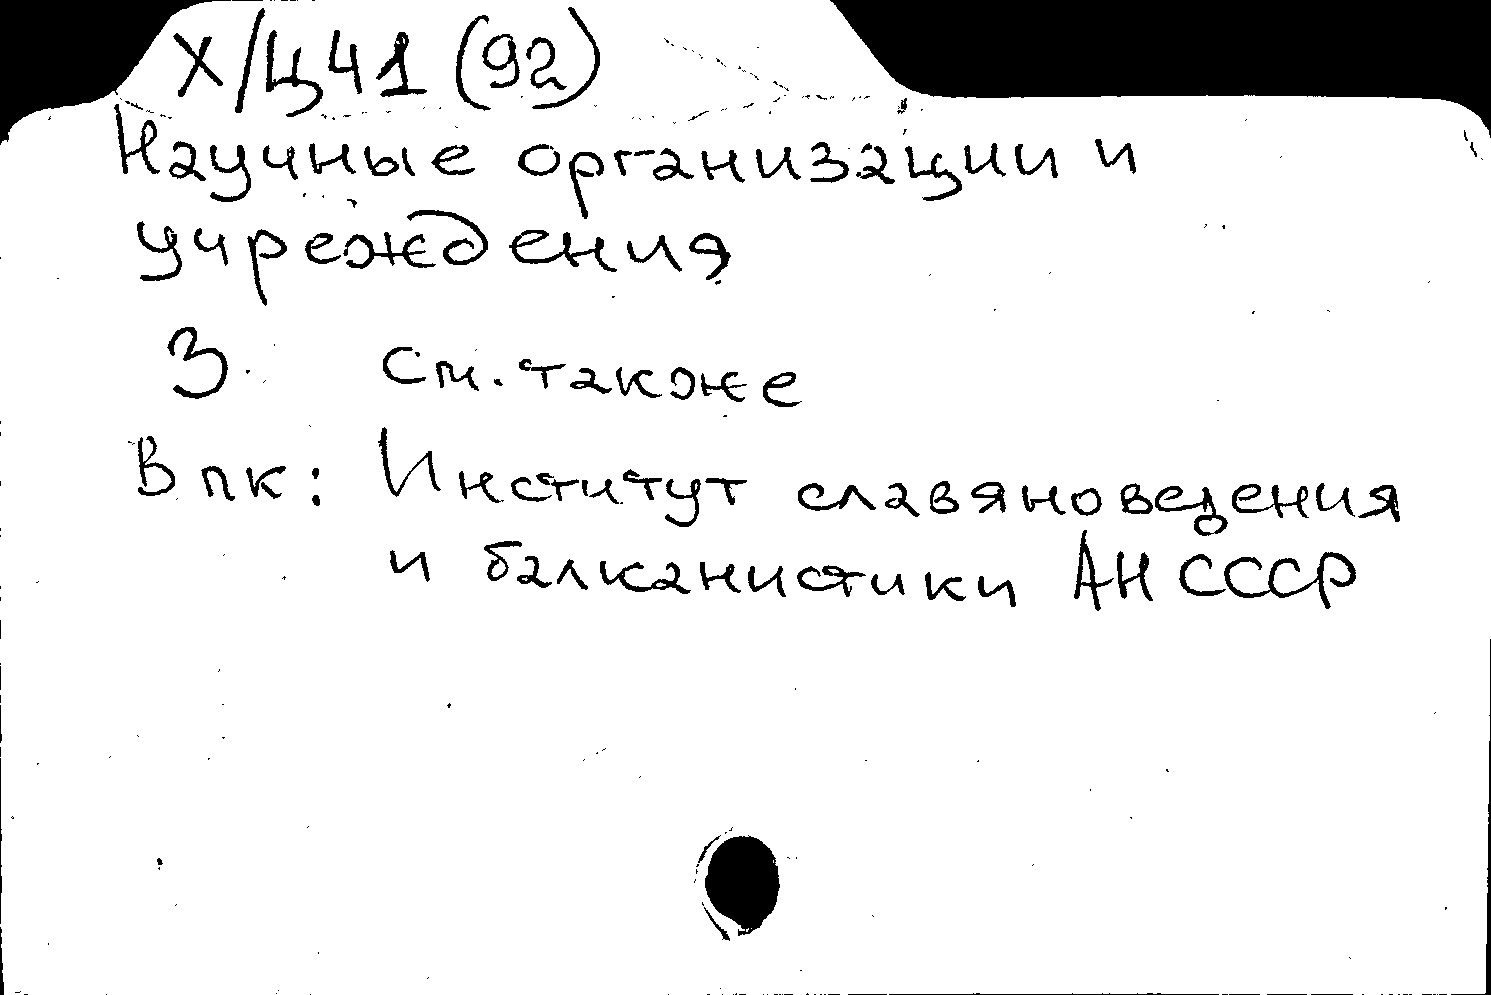 Х/Ц41 (92)
Научные организации и
учреждения
3 См. также
В пк: Институт славяноведения
и балканистики АН СССР